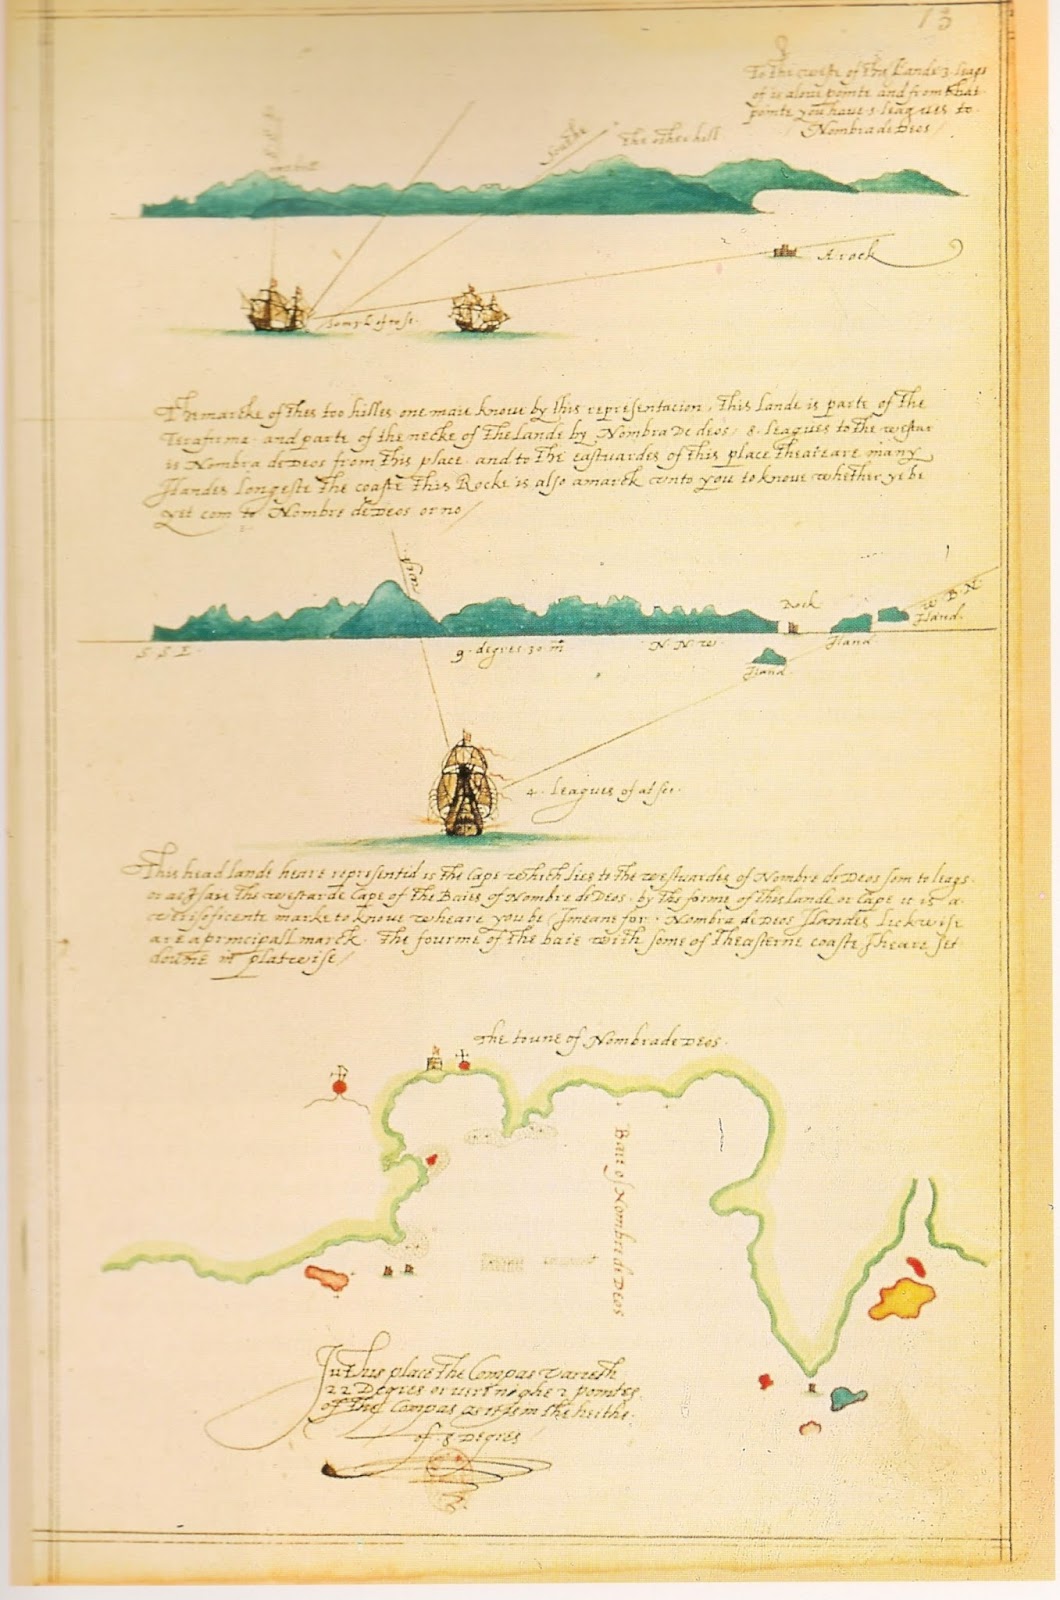 13
To the weste of this Lande 3 leags
of is a lowe pointe and from that
pointe you have 5 leagues to
Nombra de Deos
Southe
The other hill
A rock
The marcke of thes too hilles one maie knowe by this representacion, This Lande is parte of the
Terafirme and parte of the necke of the Lande by Nombra De deos, 8 leagues to the westar
is Nombra de Deos from this place and to the eastwardes of this place theare are many
Ilandes longeste the coaste This Rocke is also a marck unto you to knowe whether ye be
yet com to Nombre de Deos or no
Rock
W B N
Iland
Iland
S S E
9 degres 30 m
N N W
Iland
4 Leagues of at see
This head lande heare representid is the Cape which lies to the westwardes of Nombre de Deos som to leags
or as I say the westarde Cape of the Baie of Nombre de Deos, by the forme of this lande or Cape it is a
marke to know wheare you be I meane for Nombra de Deos Ilandes lickwise
are a princspall marck The fourme of the baie with some of the easterne coaste I heare set
doune in platwise
The toune of Nombra de Deos
Baie of Nombre de Deos
In this place the Compas varieth
22 Degres or verr nighe 2 pointes
of the Compas as it is in the heithe
of 8 Degres